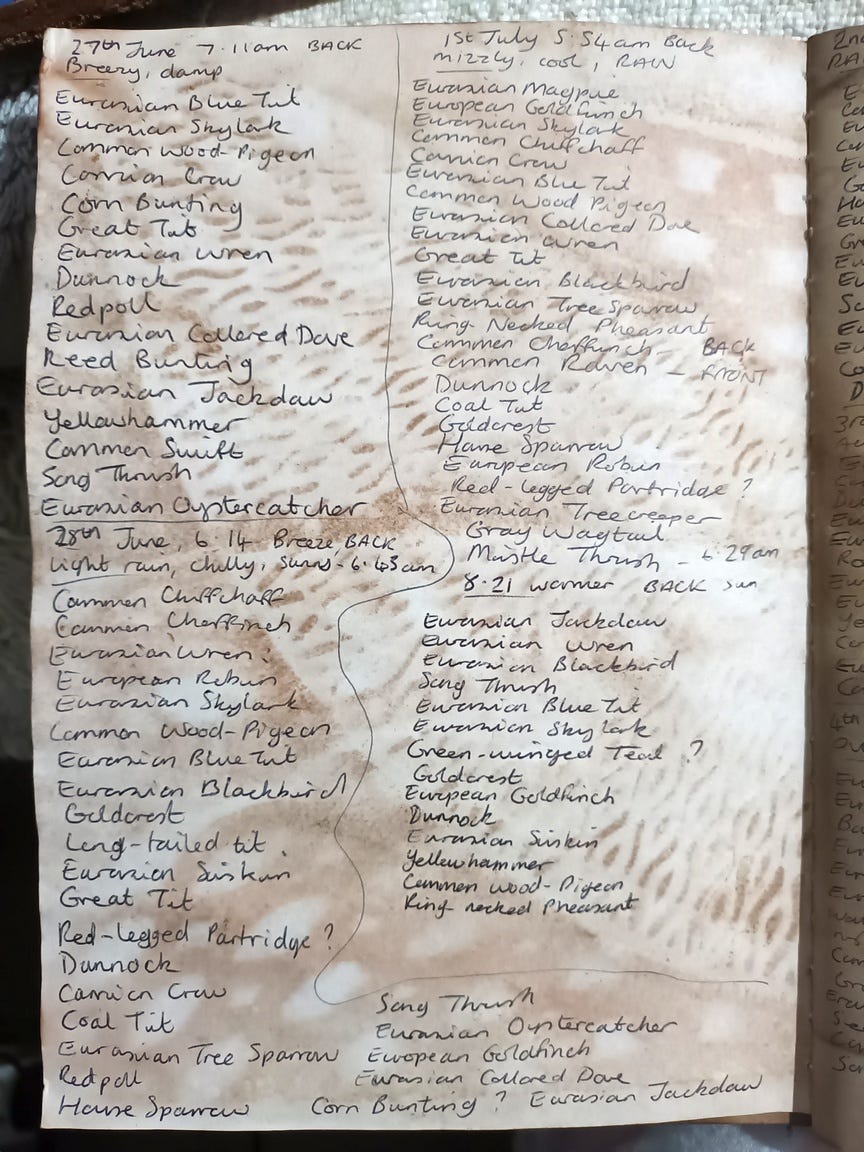 27th June 7.11am BACK
Breezy, damp
Eurasian Blue Tit
Eurasian Skylark
Common Wood-Pigeon
Carrion Crow
Corn Bunting
Great Tit
Eurasian Wren
Dunnock
Redpoll
Eurasian Collored Dove
Reed Bunting
Eurasian Jackdaw
Yellowhammer
Common Swift
Song Thrush
Eurasian Oystercatcher
28th June, 6.14 Breeze, BACK
Light rain, chilly, sunny - 6.43am
Common Chiffchaff
Common Chaffinch
Eurasian Wren
European Robin
Eurasian Skylark
Common Wood-Pigeon
Eurasian Blue Tit
Eurasian Blackbird
Goldcrest
Long-tailed tit
Eurasian Siskin
Great Tit
Red-legged Partridge ?
Dunnock
Carrion Crow
Coal Tit
Eurasian Tree Sparrow
Redpoll
House Sparrow
Song Thrush
Eurasian Oystercatcher
European Goldfinch
Eurasian Collored Dove
Corn Bunting ? Eurasian Jackdaw
1st July 5.54am Back
mizzly, cool, RAIN
Eurasian Magpie
European Goldfinch
Eurasian Skylark
Common Chiffchaff
Carrion Crow
Eurasian Blue Tit
Common Wood Pigeon
Eurasian Collored Dove
Eurasian Wren
Great Tit
Eurasian Blackbird
Eurasian Tree Sparrow
Ring-Necked Pheasant
Common Chaffinch - BACK
Common Raven - FRONT
Dunnock
Coal Tit
Goldcrest
House Sparrow
European Robin
Red-legged Partridge ?
Eurasian Treecreeper
Gray Wagtail
Mistle Thrush - 6.29am
8.21 warmer BACK sun
Eurasian Jackdaw
Eurasian Wren
Eurasian Blackbird
Song Thrush
Eurasian Blue Tit
Eurasian Skylark
Green-winged Teal ?
Goldcrest
European Goldfinch
Dunnock
Eurasian Siskin
Yellowhammer
Common Wood-Pigeon
Ring necked Pheasant